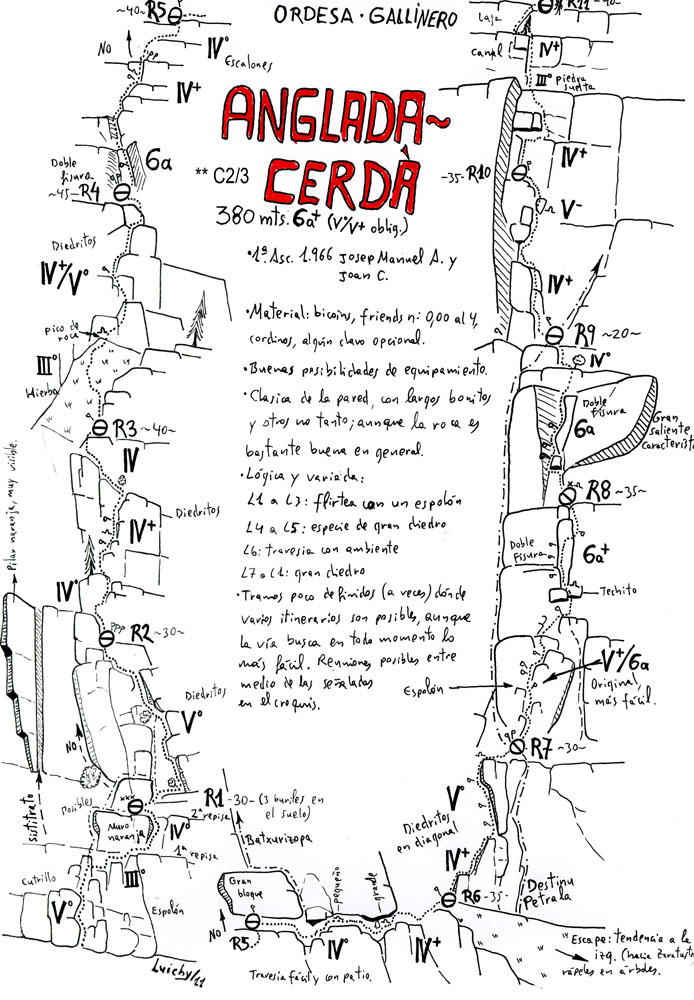 ORDESA · GALLINERO
ANGLADÀ~
CERDÀ
** C2/3
380 mts. 6a+ (V°/V+ oblig.)
·1ª Asc. 1.966 Josep Manuel A. y
Joan C.
·Material: bicoins, friends n: 0,00 al 4,
cordinos, algún clavo opcional.
·Buenas posibilidades de equipamiento.
·Clasica de la pared, con largos bonitos
y otros no tanto; aunque la roca es
bastante buena en general.
·Lógica y variada:
L1 a L3: flirtea con un espolón
L4 a L5: especie de gran diedro
L6: travesia con ambiente
L7 a L11: gran diedro
·Tramos poco definidos (a veces) dónde
varios itinerarios son posibles, aunque
la vía busca en todo momento lo
más fácil. Reuniones posibles entre
medio de las señaladas
en el croquis.
~40~ R5
NO
IV°
Escalones
IV+
6a
Doble
fisura
~45~ R4
Diedritos
IV+/V°
Pico de
roca
III°
Hierba
R3 ~40~
IV
Diedritos
IV+
IV°
Pilar naranja, muy visible.
R2 ~30~
Diedritos
V°
NO
sustitrato
Posibles
R1 -30~ (3 buriles en
el suelo)
2ª repisa
Muro
naranja
IV°
1ª repisa
III°
Cutrillo
V°
Espolón
Luichy/11
Batxurizopa
Gran
bloque
pequeño
grande
NO
R5
IV°
IV+
Travesia fácil y con patio.
R6 -35-
Destinu
Petrala
Escape: tendencia a la
izq. (hacia Zaratust
rápeles en árboles.
IV+
Diedritos
en diagonal
V°
R7 ~30~
Espolón
V+/6a
Original,
más fácil.
Techito
Doble
fisura
6a+
R8 ~35~
6a
Doble
fisura
Gran
saliente
característi
IV°
R9 ~20~
IV+
V-
-35- R10
IV+
III° Piedra
suelta
Canal
IV+
Laja
R11 ~40~